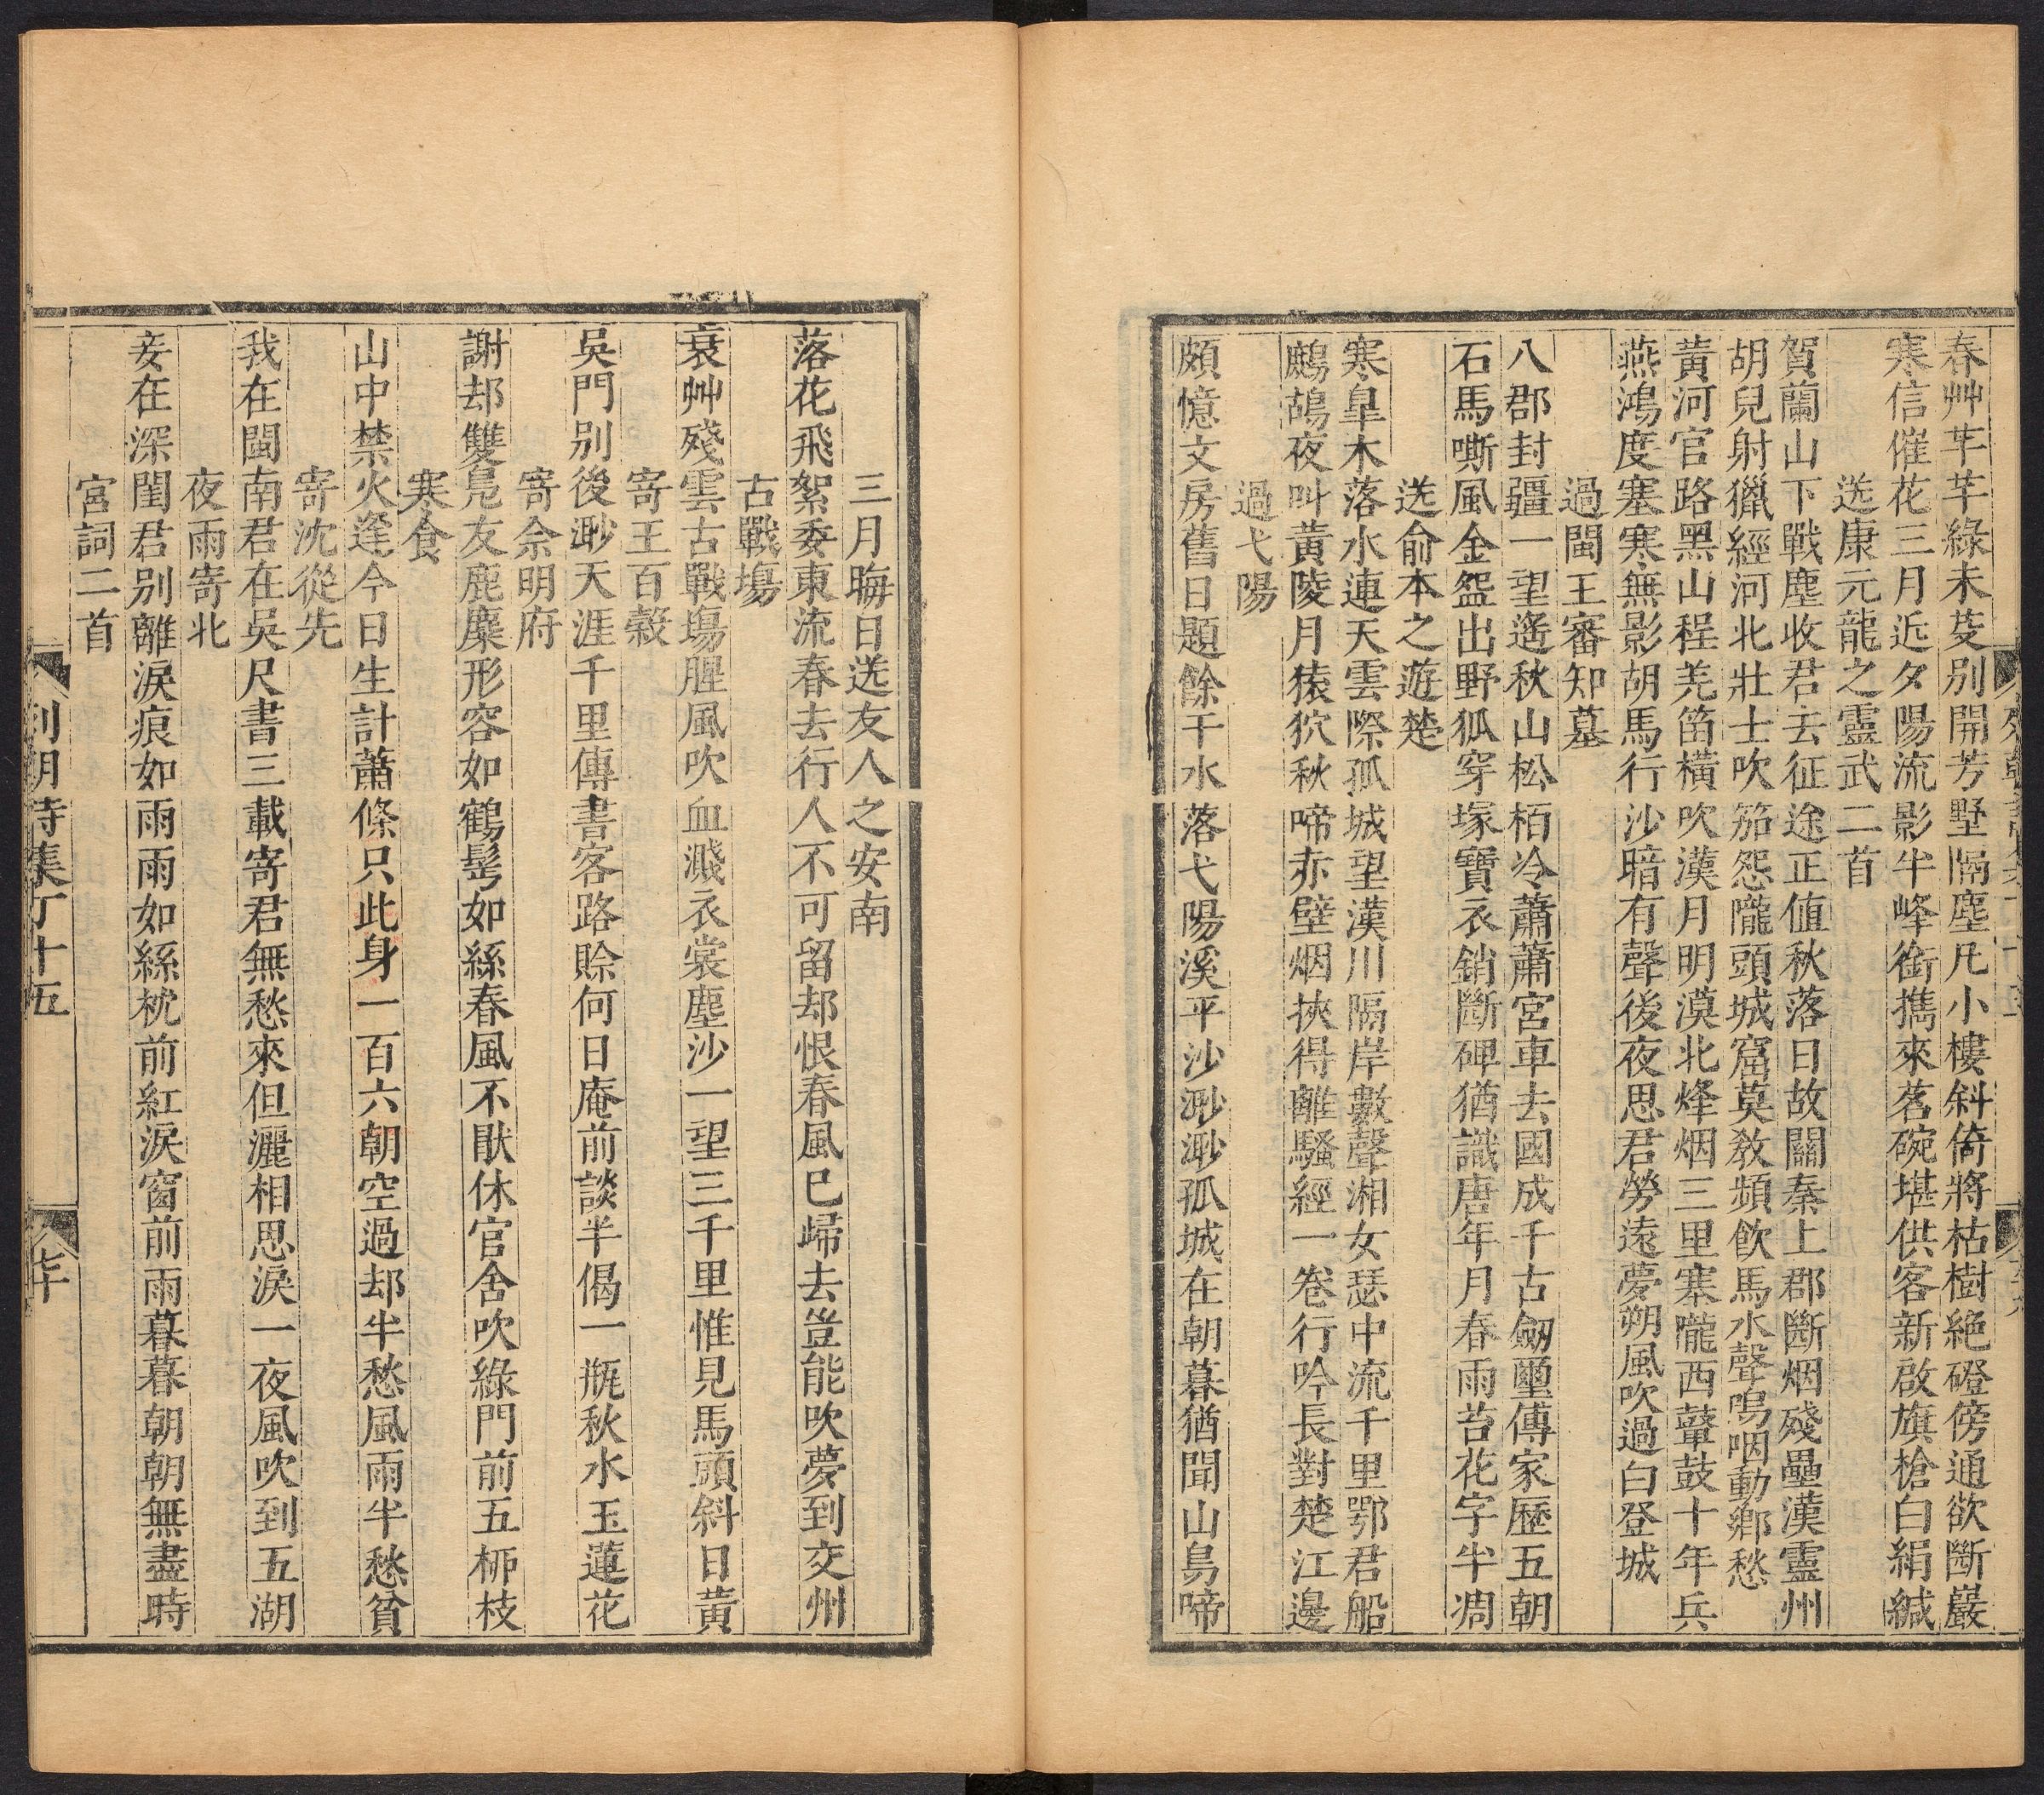 春艸芊芊綠未芟別開芳墅隔塵凡小樓斜倚將枯樹絶磴傍通欲斷巖
寒信催花三月近夕陽流影半峰銜攜來茗碗堪供客新啟旗槍白絹緘
送康元龍之靈武二首
賀蘭山下戰塵收君去征途正値秋落日故關秦上郡斷烟殘壘漢靈州
胡兒射獵經河北壯士吹笳怨隴頭城窟莫敎頻飲馬水聲嗚咽動鄉愁
黃河官路黑山程羌笛橫吹漢月明漠北烽烟三里塞隴西鼙鼓十年兵
燕鴻度塞寒無影胡馬行沙暗有聲後夜思君勞遠夢朔風吹過白登城
過閩王審知墓
八郡封疆一望遙秋山松栢冷蕭蕭宮車去國成千古劒璽傳家歷五朝
石馬嘶風金盌出野狐穿塚寶衣銷斷碑猶識唐年月春雨苔花字半凋
送俞本之遊楚
寒皐木落水連天雲際孤城望漢川隔岸數聲湘女瑟中流千里鄂君船
鷓鴣夜叫黃陵月猿狖秋啼赤壁烟挾得離騷經一卷行吟長對楚江邊
過弋陽
頗憶文房舊日題餘干水落弋陽溪平沙渺渺孤城在朝暮猶聞山鳥啼
三月晦日送友人之安南
落花飛絮委東流春去行人不可留却恨春風已歸去豈能吹夢到交州
古戰塲
衰艸殘雲古戰塲腥風吹血濺衣裳塵沙一望三千里惟見馬頭斜日黃
寄王百穀
吳門别後渺天涯千里傳書客路賒何日庵前談半偈一瓶秋水玉蓮花
寄佘明府
謝却雙鳧友鹿麋形容如鶴髩如絲春風不猒休官舍吹綠門前五桺枝
寒食
山中禁火逢今日生計蕭條只此身一百六朝空過却半愁風雨半愁貧
寄沈從先
我在閩南君在吳尺書三載寄君無愁來但灑相思淚一夜風吹到五湖
夜雨寄北
妾在深閨君别離淚痕如雨雨如絲枕前紅淚窗前雨暮暮朝朝無盡時
宮詞二首
列朝詩集丁十五